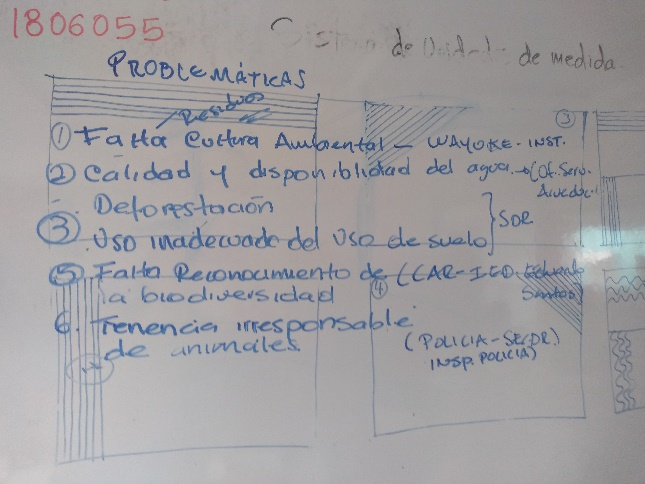 1806055
de medida
PROBLEMÁTICAS
Residuos
① Falta Cultura Ambiental - WAYOKE-INST.
② Calidad y disponiblidad del agua. → (Of. Serv.
Deforestación
③ Uso inadecuado del Uso de suelo } SDR
⑤ Falta Reconocimiento de (CAR-IED. Eduardo
la biodiversidad Santos)
6. Tenencia irresponsable
de animales
(POLICIA-SEC.DR)
INSP. POLICIA)
③
④